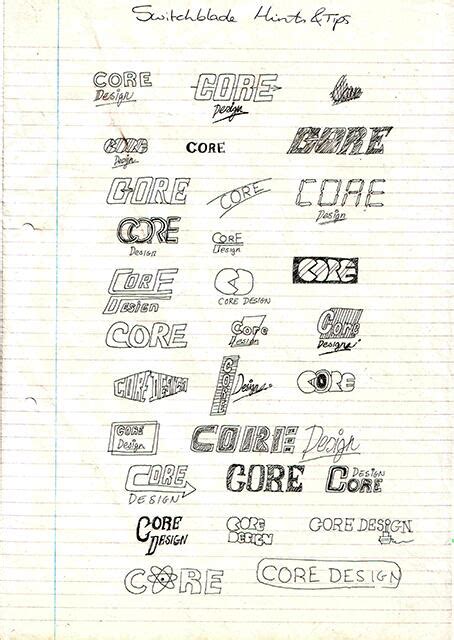 Switchblade Hints & Tips
CORE
Design
CORE
Design
CORE
Design
CORE
CORE
CORE
CORE
CORE
Design
CORE
Design
CORE
Design
CORE
Design
CORE DESIGN
CORE
CORE
Core
Design
Core
Designs
CORE DESIGN
CORE
Designs
CORE
CORE
Design
CORE Design
CORE
DESIGN
CORE
DESIGN
CORE
CORE
DESIGN
CORE
DESIGN
CORE DESIGN
CORE
CORE DESIGN